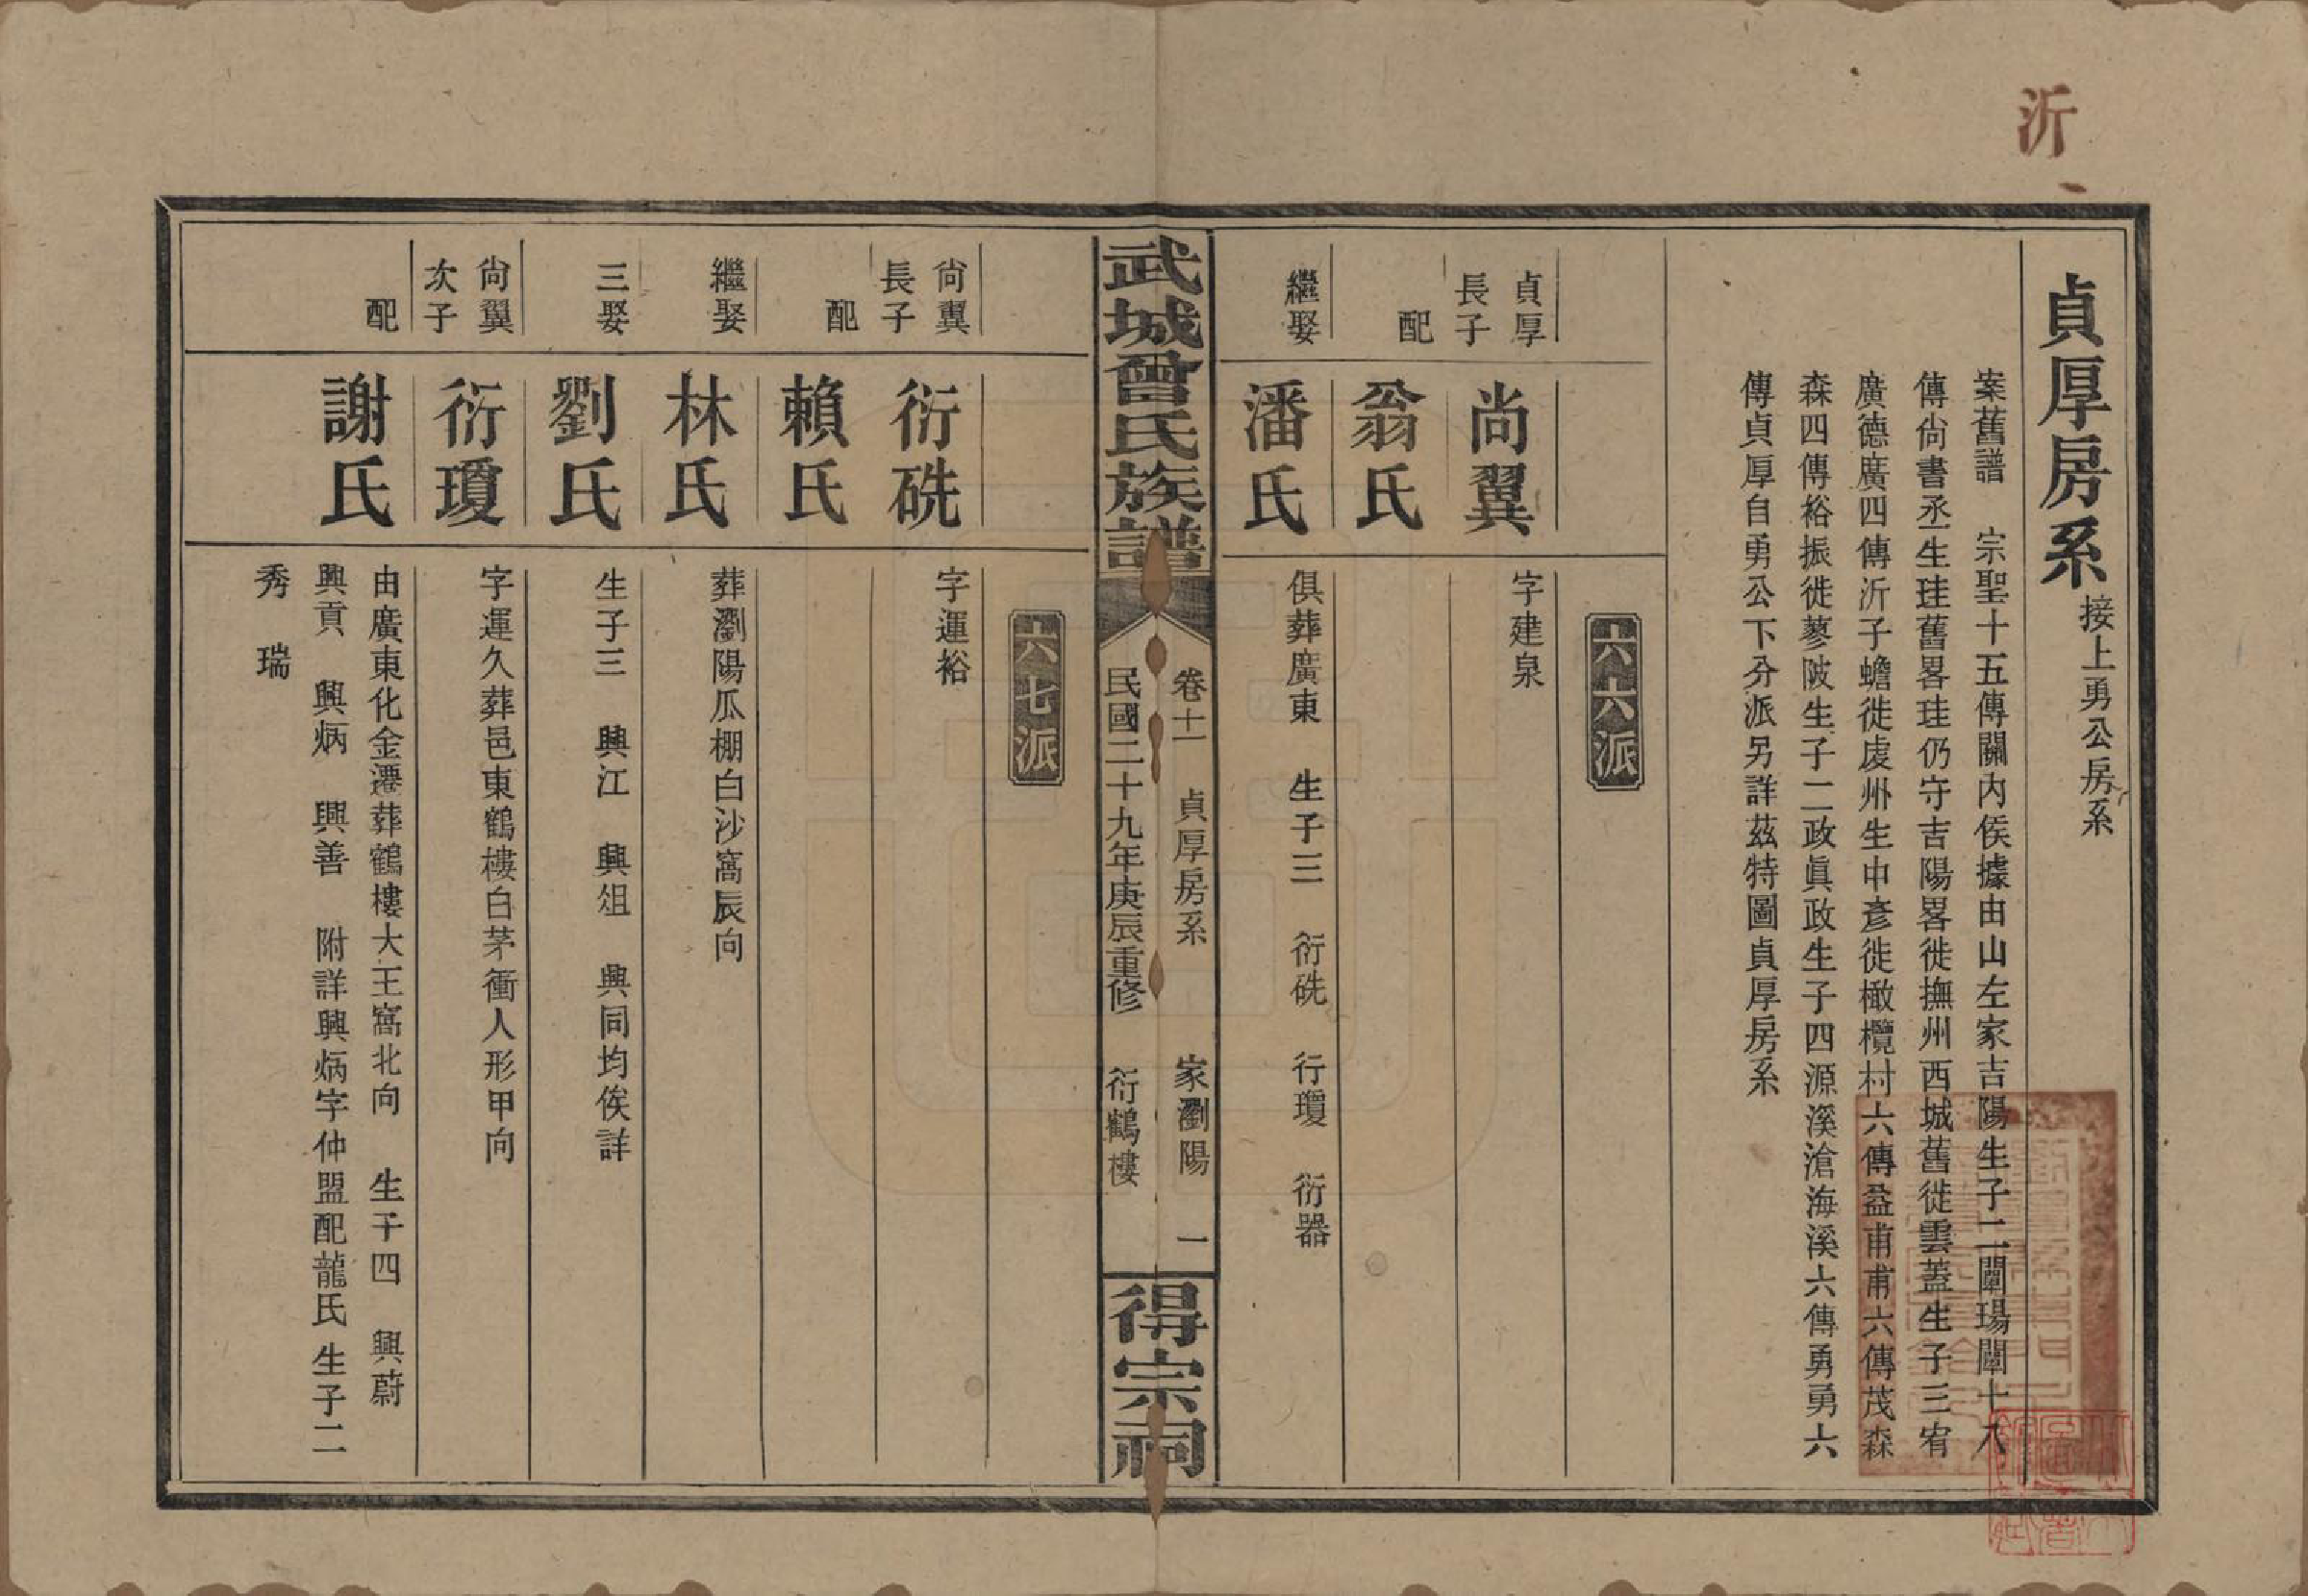 沂
貞厚房系 接上勇公房系
案舊譜　宗聖十五傳關內侯據由山左家吉陽生子二闡瑒闡十八
傳尙書丞生珪舊畧珪仍守吉陽畧徙撫州西城舊徙雲蓋生子三宥
廣德廣四傳沂子蟾徙虔州生中彥徙橄欖村六傳益甫甫六傳茂森
森四傳裕振徙蓼陂生子二政眞政生子四源溪滄海溪六傳勇勇六
傳貞厚自勇公下分派另詳茲特圖貞厚房系
六六派
貞厚長子　尚翼　字建泉
配　翁氏
繼娶　潘氏　俱葬廣東　生子三　衍硄　行瓊　衍器
武城曾氏族譜
卷十一　貞厚房系　家瀏陽　一
民國二十九年庚辰重修　衍鶴樓
得宗祠
六七派
尙翼長子　衍硄　字運裕
配　賴氏
繼娶　林氏　葬瀏陽瓜棚白沙窩辰向
三娶　劉氏　生子三　興江　興俎　興同均俟詳
尙翼次子　衍瓊　字運久葬邑東鶴樓白茅衝人形甲向
配　謝氏　由廣東化金遷葬鶴樓大王窩北向　生子四　興蔚
興貢　興炳　興善　附詳興炳字仲盟配龍氏　生子二
秀　瑞